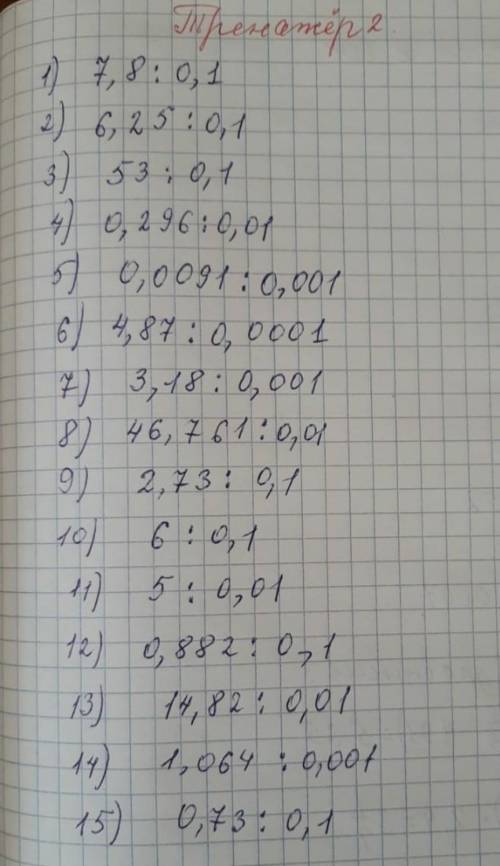 Тренажёр 2.
1) 7,8 : 0,1
2) 6,25 : 0,1
3) 53 : 0,1
4) 0,296 : 0,01
5) 0,0091 : 0,001
6) 4,87 : 0,0001
7) 3,18 : 0,001
8) 46,761 : 0,01
9) 2,73 : 0,1
10) 6 : 0,1
11) 5 : 0,01
12) 0,882 : 0,1
13) 14,82 : 0,01
14) 1,064 : 0,001
15) 0,73 : 0,1